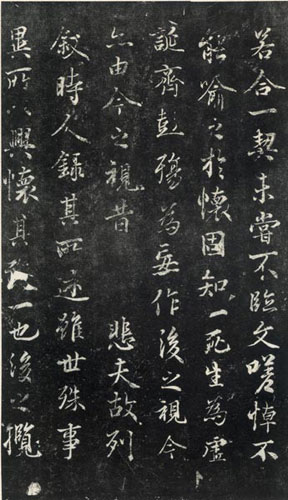 若合一契未嘗不臨文嗟悼不
能喻之於懷固知一死生為虛
誕齊彭殤為妄作後之視今
亦由今之視昔 悲夫故列
叙時人錄其所述雖世殊事
異所以興懷其致一也後之攬